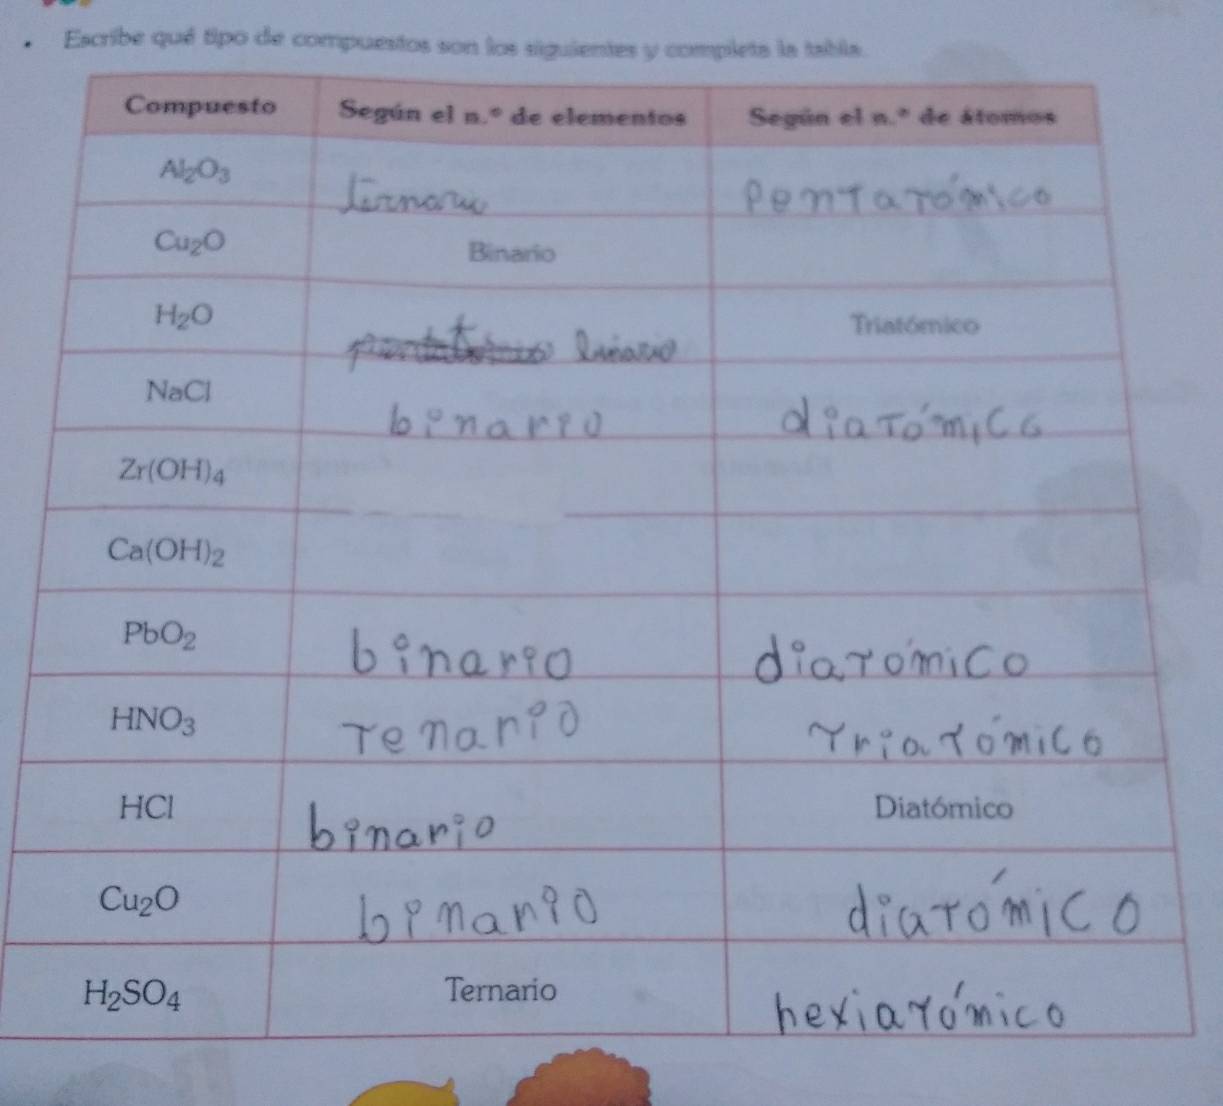 • Escribe qué tipo de compuestos son los siguientes y completa la tabla.
Compuesto Según el n.º de elementos Según el n.º de átomos
Al₂O₃ Ternario Pentatómico
Cu₂O Binario
H₂O binario Triatómico
NaCl binario diatómico
Zr(OH)₄
Ca(OH)₂
PbO₂ binario diatómico
HNO₃ Tenario Triatómico
HCl binario Diatómico
Cu₂O binario diatómico
H₂SO₄ Ternario hexiatómico